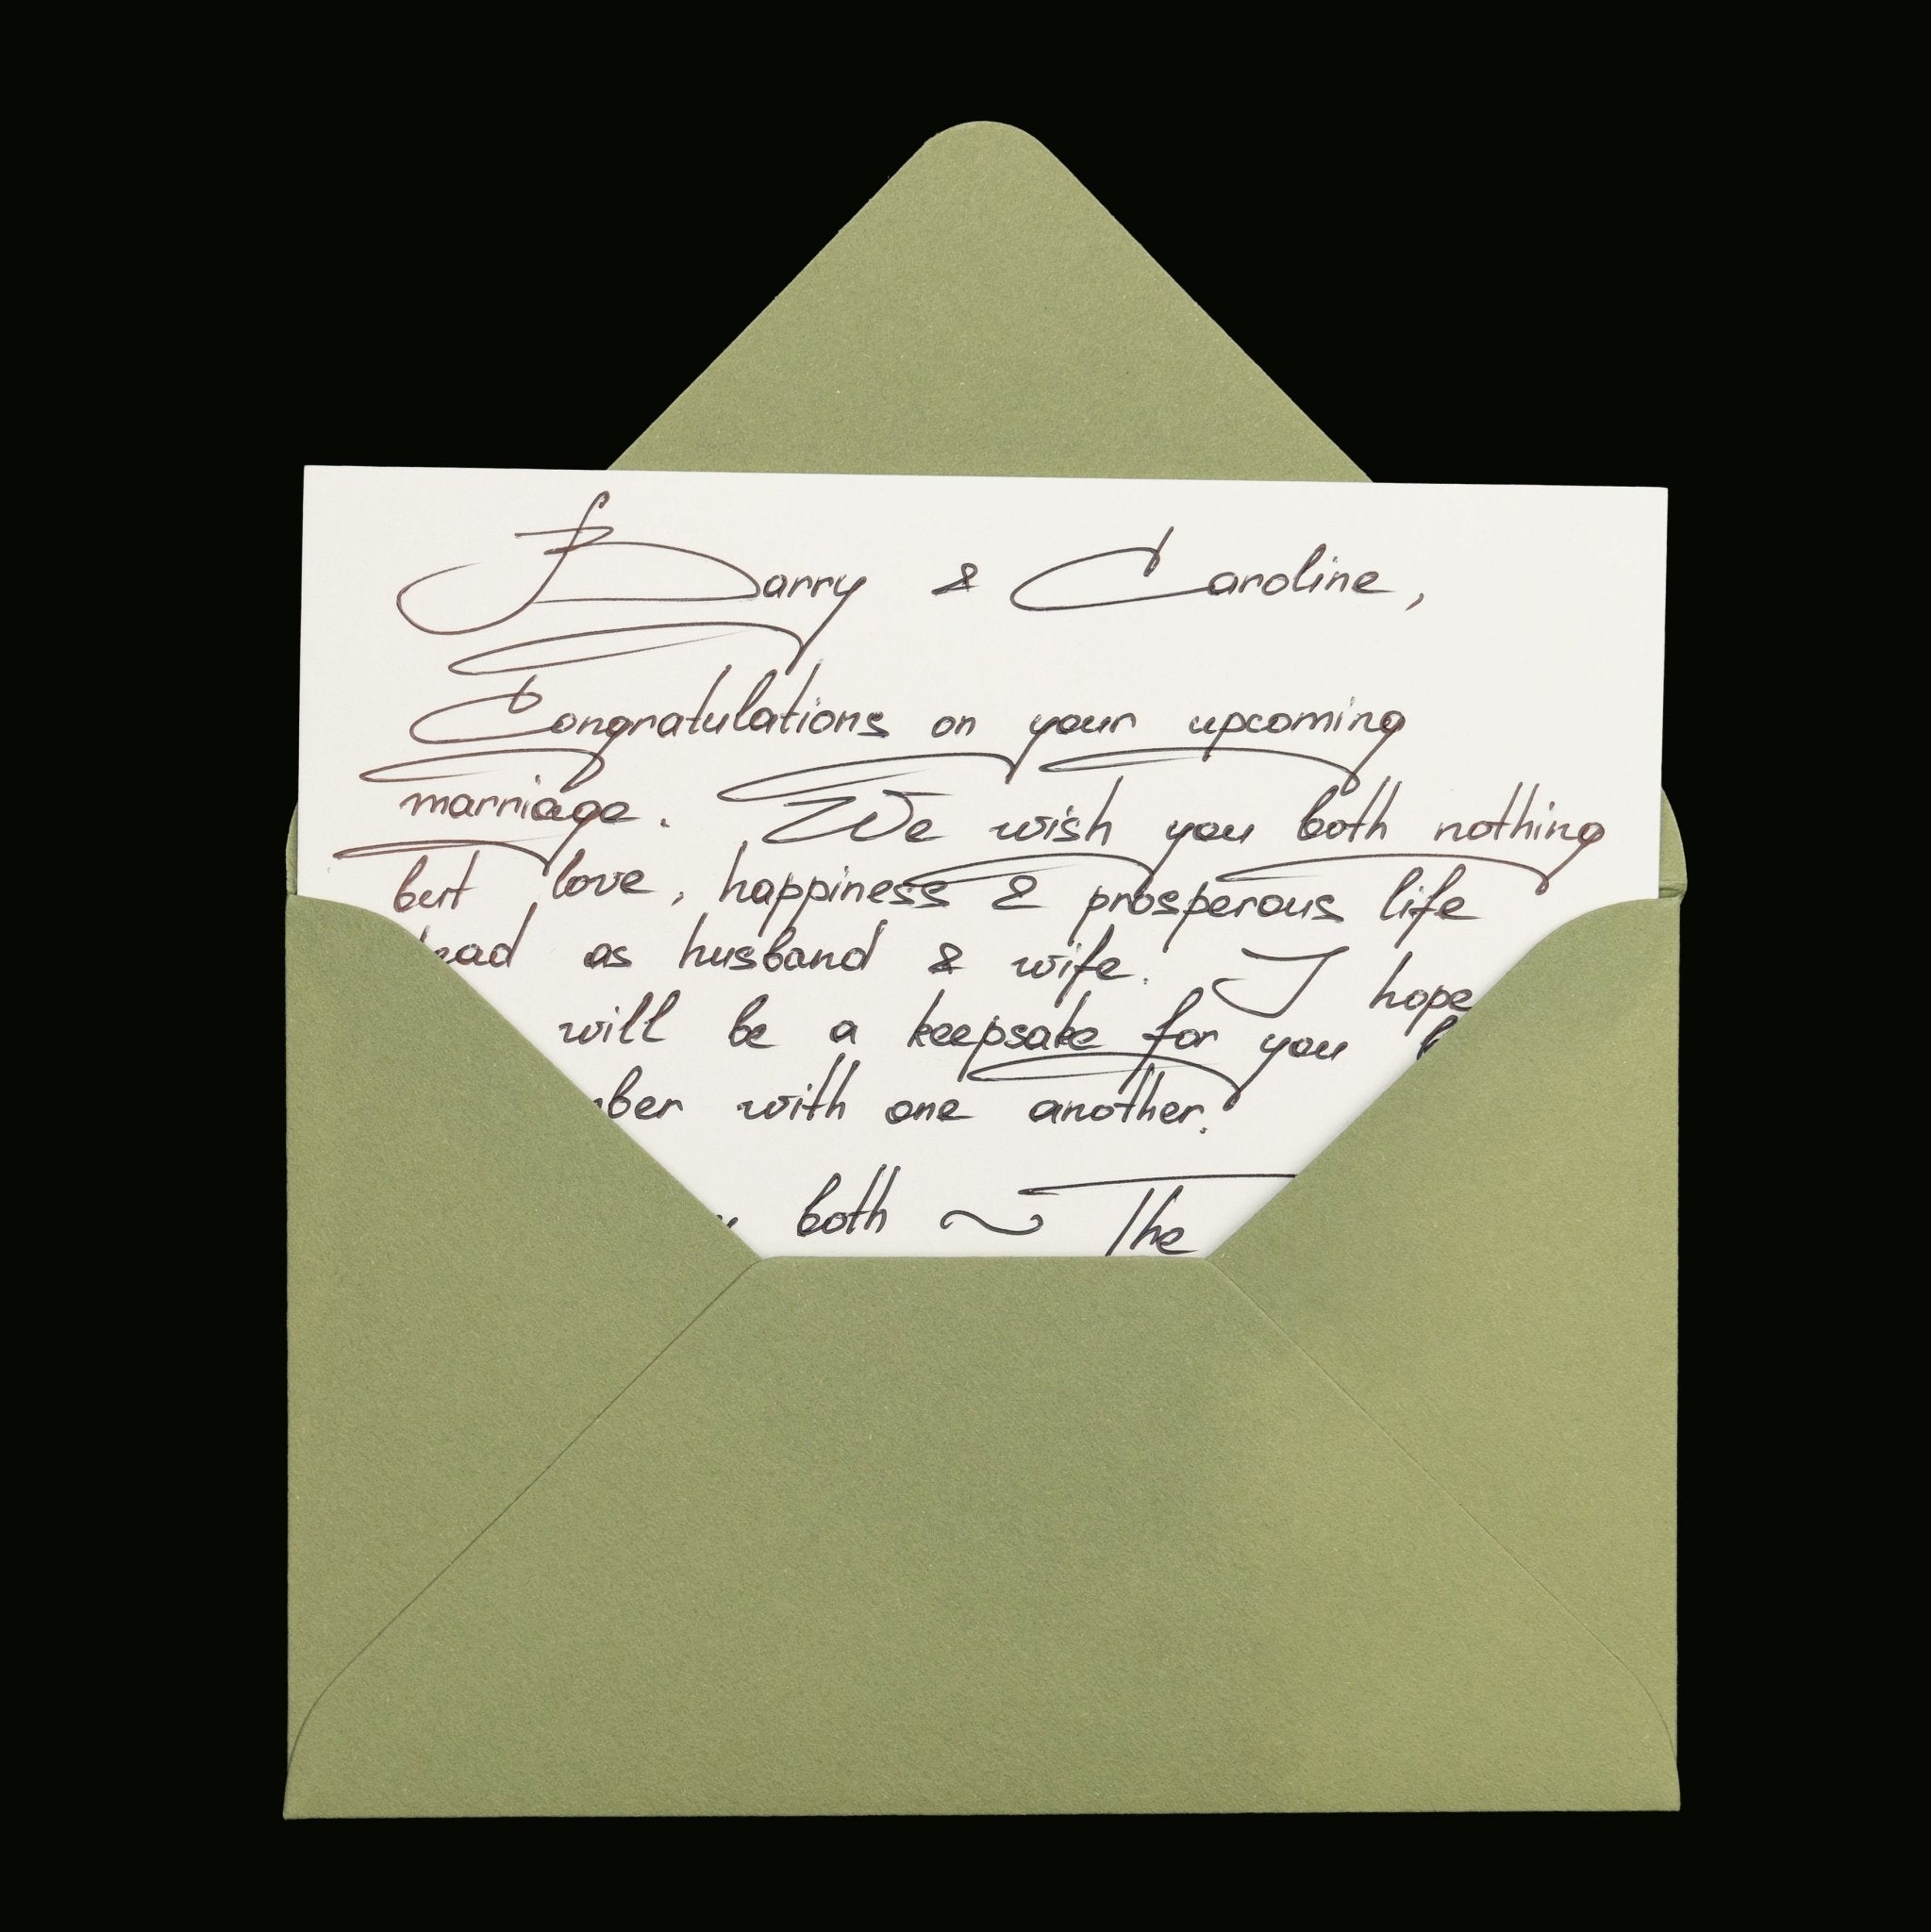 Barry & Caroline,
Congratulations on your upcoming
marriage. We wish you both nothing
but love, happiness & prosperous life
as husband & wife. I hope
will be a keepsake for you
with one another.
both ~ The